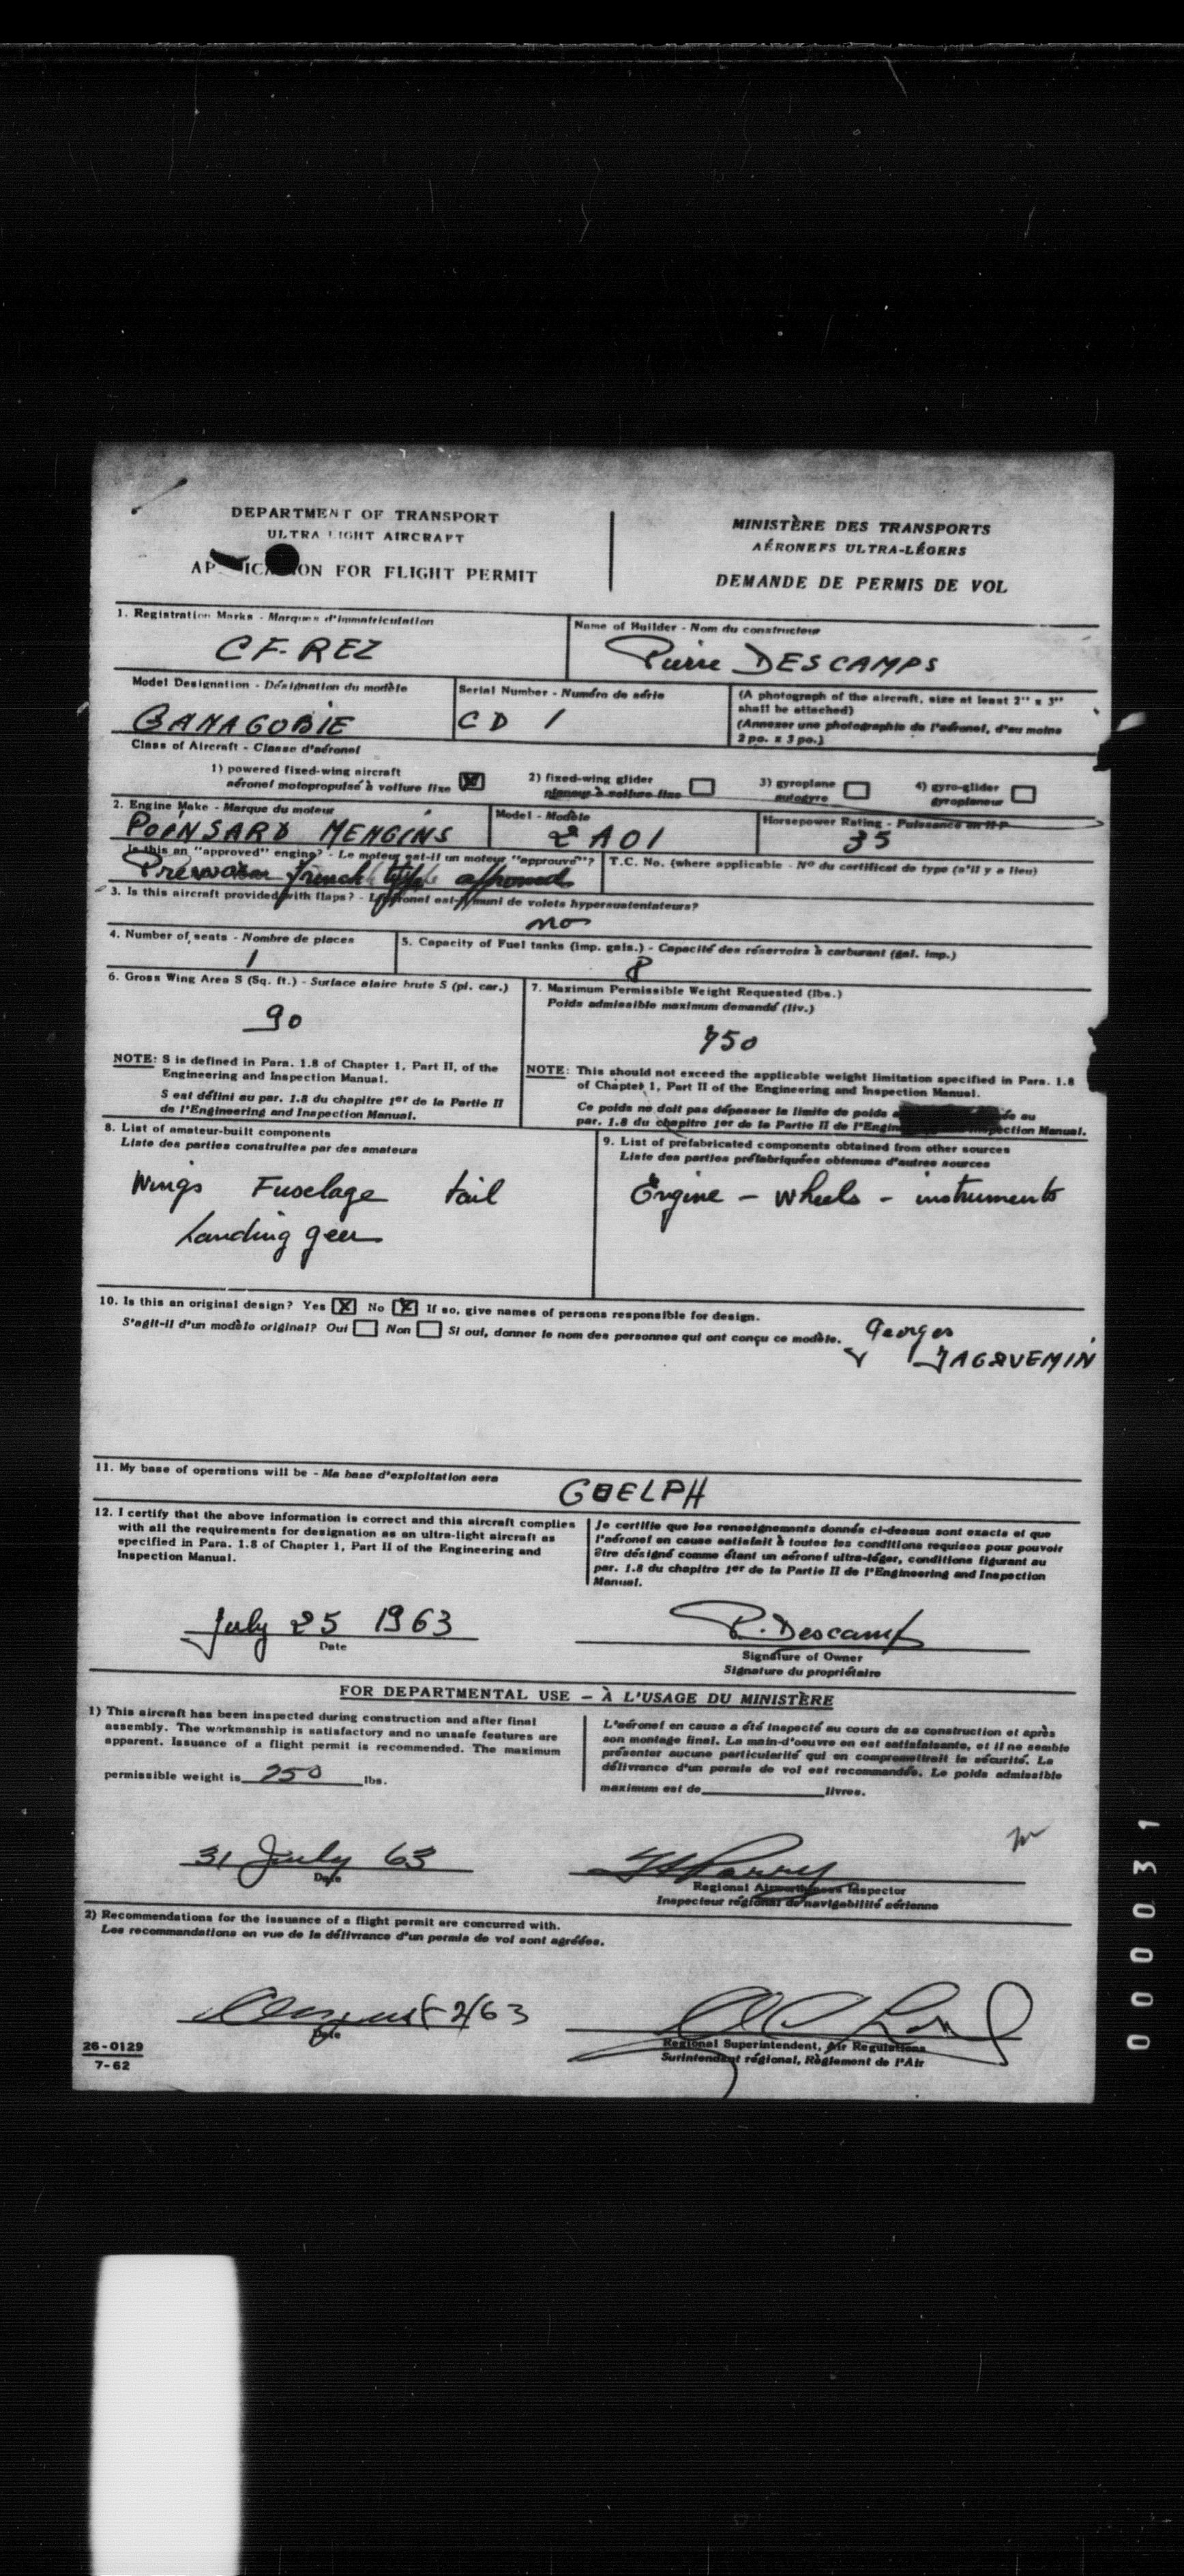 DEPARTMENT OF TRANSPORT
ULTRA LIGHT AIRCRAFT
FOR FLIGHT PERMIT
MINISTÈRE DES TRANSPORTS
AÉRONEFS ULTRA-LÉGERS
DEMANDE DE PERMIS DE VOL
1. Registration Marks - Marques d'immatriculation
CF-REZ
Name of Builder - Nom du constructeur
Pierre DESCAMPS
Model Designation - Désignation du modèle
BANAGOBIE
Serial Number - Numéro de série
CD 1
(A photograph of the aircraft, size at least 2" x 3"
shall be attached)
(Annexer une photographie de l'aéronef, d'au moins
2 po. x 3 po.)
Class of Aircraft - Classe d'aéronef
1) powered fixed-wing aircraft
aéronef motopropulsé à voilure fixe
2) fixed-wing glider
planeur à voilure fixe
3) gyroplane
autogyre
4) gyro-glider
gyroplaneur
2. Engine Make - Marque du moteur
POINSARD MENGINS
Model - Modèle
2 A01
Horsepower Rating - Puissance en H P
35
Is this an "approved" engine? - Le moteur est-il un moteur "approuvé"?
French type approved
T.C. No. (where applicable - Nº du certificat de type (s'il y a lieu)
3. Is this aircraft provided with flaps? - L'aéronef est-il muni de volets hypersustentateurs?
no
4. Number of seats - Nombre de places
1
5. Capacity of Fuel tanks (imp. gals.) - Capacité des réservoirs à carburant (gal. imp.)
8
6. Gross Wing Area S (Sq. ft.) - Surface alaire brute S (pi. car.)
90
NOTE: S is defined in Para. 1.8 of Chapter 1, Part II, of the
Engineering and Inspection Manual.
S est défini au par. 1.8 du chapitre 1er de la Partie II
de l'Engineering and Inspection Manual.
7. Maximum Permissible Weight Requested (lbs.)
Poids admissible maximum demandé (liv.)
750
NOTE: This should not exceed the applicable weight limitation specified in Para. 1.8
of Chapter 1, Part II of the Engineering and Inspection Manual.
Ce poids ne doit pas dépasser la limite de poids au
par. 1.8 du chapitre 1er de la Partie II de l'Engineering Inspection Manual.
8. List of amateur-built components
Liste des parties construites par des amateurs
Wings Fuselage tail
Landing gear
9. List of prefabricated components obtained from other sources
Liste des parties préfabriquées obtenues d'autres sources
Engine - wheels - instruments
10. Is this an original design? Yes No If so, give names of persons responsible for design.
S'agit-il d'un modèle original? Oui Non Si oui, donner le nom des personnes qui ont conçu ce modèle.
Georges
JACQUEMIN
11. My base of operations will be - Ma base d'exploitation sera
GUELPH
12. I certify that the above information is correct and this aircraft complies
with all the requirements for designation as an ultra-light aircraft as
specified in Para. 1.8 of Chapter 1, Part II of the Engineering and
Inspection Manual.
Je certifie que les renseignements donnés ci-dessus sont exacts et que
l'aéronef en cause satisfait à toutes les conditions requises pour pouvoir
être désigné comme étant un aéronef ultra-léger, conditions figurant au
par. 1.8 du chapitre 1er de la Partie II de l'Engineering and Inspection
Manual.
July 25 1963
Date
P. Descamps
Signature of Owner
Signature du propriétaire
FOR DEPARTMENTAL USE - À L'USAGE DU MINISTÈRE
1) This aircraft has been inspected during construction and after final
assembly. The workmanship is satisfactory and no unsafe features are
apparent. Issuance of a flight permit is recommended. The maximum
permissible weight is 750 lbs.
L'aéronef en cause a été inspecté au cours de sa construction et après
son montage final. La main-d'oeuvre en est satisfaisante, et il ne semble
présenter aucune particularité qui en compromettrait la sécurité. La
délivrance d'un permis de vol est recommandée. Le poids admissible
maximum est de livres.
31 July 63
Date
Regional Airworthiness Inspector
Inspecteur régional de navigabilité aérienne
2) Recommendations for the issuance of a flight permit are concurred with.
Les recommandations en vue de la délivrance d'un permis de vol sont agréées.
August 2/63
Date
Regional Superintendent, Air Regulations
Surintendant régional, Règlement de l'Air
26-0129
7-62
000031